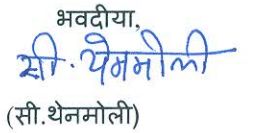 भवदीया,
सी. थेनमोली
(सी.थेनमोली)